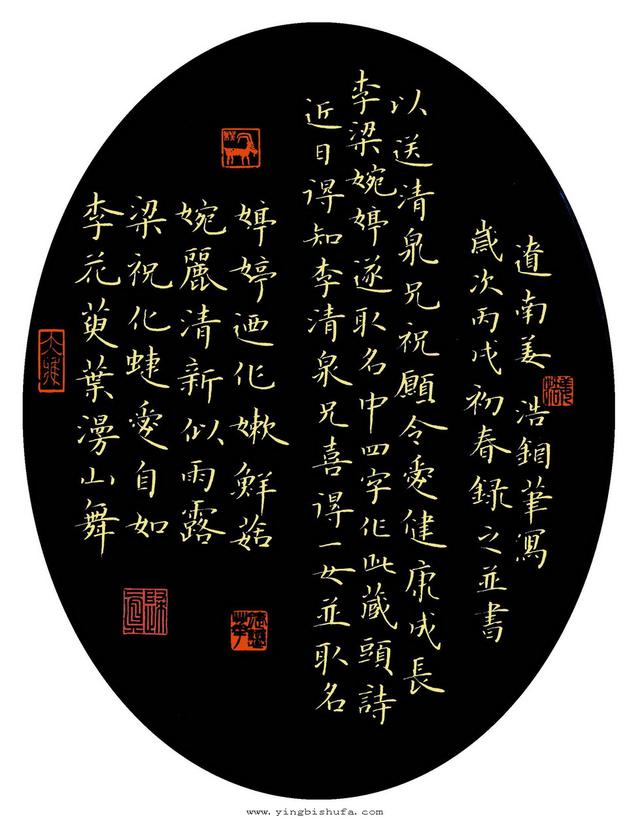 李花萸葉漫山舞
梁祝化蜨愛自如
婉麗清新似雨露
婷婷迺化嫩鮮菇
近日得知李清泉兄喜得一女並取名
李梁婉婷遂取名中四字作此藏頭詩
以送清泉兄祝願令愛健康成長
歲次丙戌初春録之並書
遼南姜浩鋼筆寫
www.yingbishufa.com